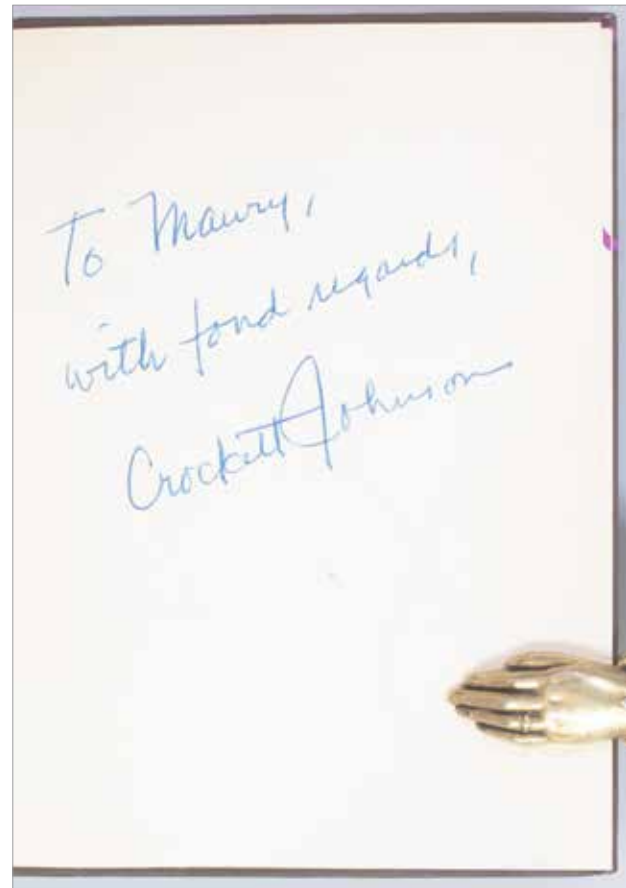 To Maury,
with fond regards,
Crockett Johnson